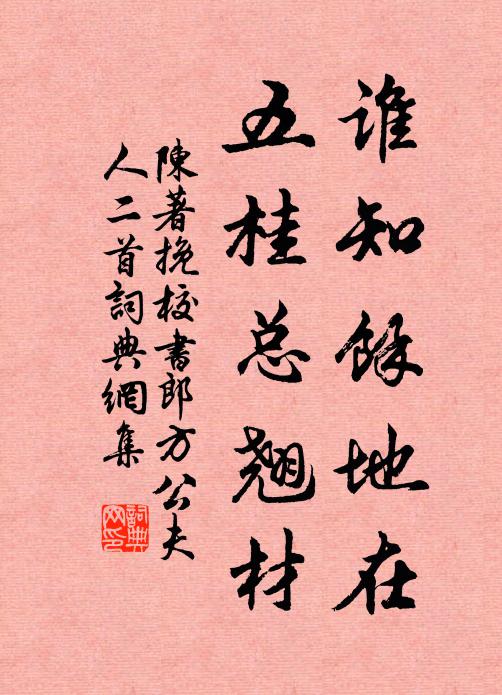 谁知餘地在
五桂总翘材
陳著挽校書郎方公夫
人二首詞典網集
詞典
网印